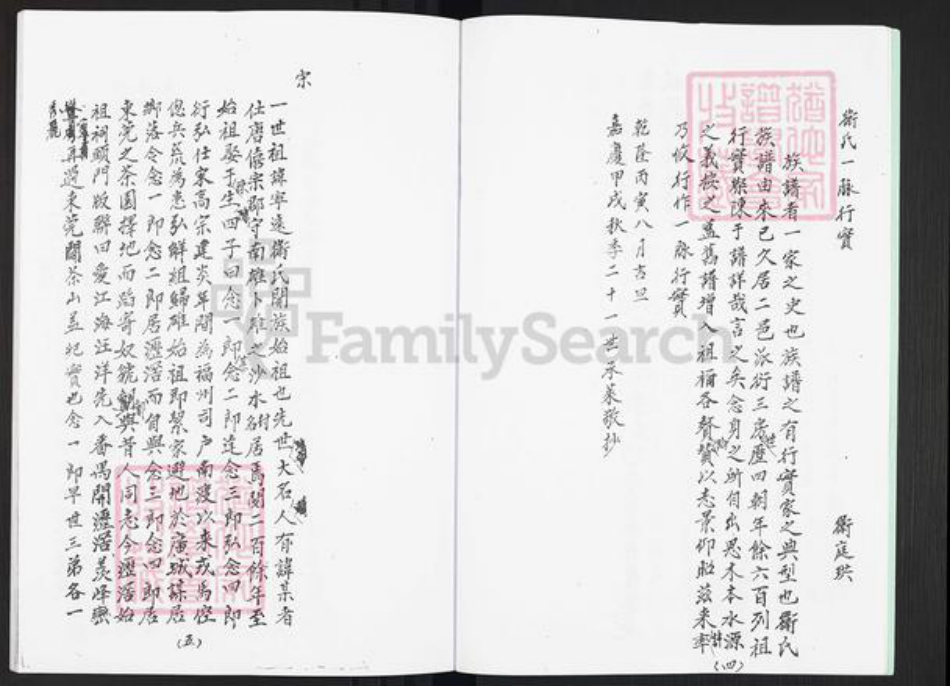 衛氏一脉行實
衛庭珙
族譜者一家之史也族譜之有行實家之典型也衛氏
族譜由來已久居二邑派衍三房歷四朝年餘六百列祖
行實縣陳于譜詳哉言之矣念身之所自出思木本水源
之義按之盖舊譜增入祖禰各賛以志景仰昭茲来
乃攸行作一脉行實
乾隆丙寅八月吉旦
嘉慶甲戌秋季二十一世承菉敬抄
(四)
宋
一世祖諱寧遠衛氏開族始祖也先世大名人有諱某者
仕唐僖宗郡守南雄卜雄之沙水村居焉閱二百餘年至
始祖娶于生四子曰念一郎念二郎逵念三郎弘念四郎
衍弘仕宋高宗建炎年間為福州司户南渡以来戎馬倥
偬兵荒為患弘解組歸雄始祖即絜家避地於廣城謀居
鄉落令念一郎念二郎居瀝滘而自與念三郎念四郎居
東莞之茶園擇地而蹈寄奴號與昔人同志今瀝滘始
祖祠頭門版聯曰愛江海汪洋先入番禺開瀝滘羡峰巒
再過東莞闢茶山盖紀實也念一郎早世三弟各一
(五)
FamilySearch